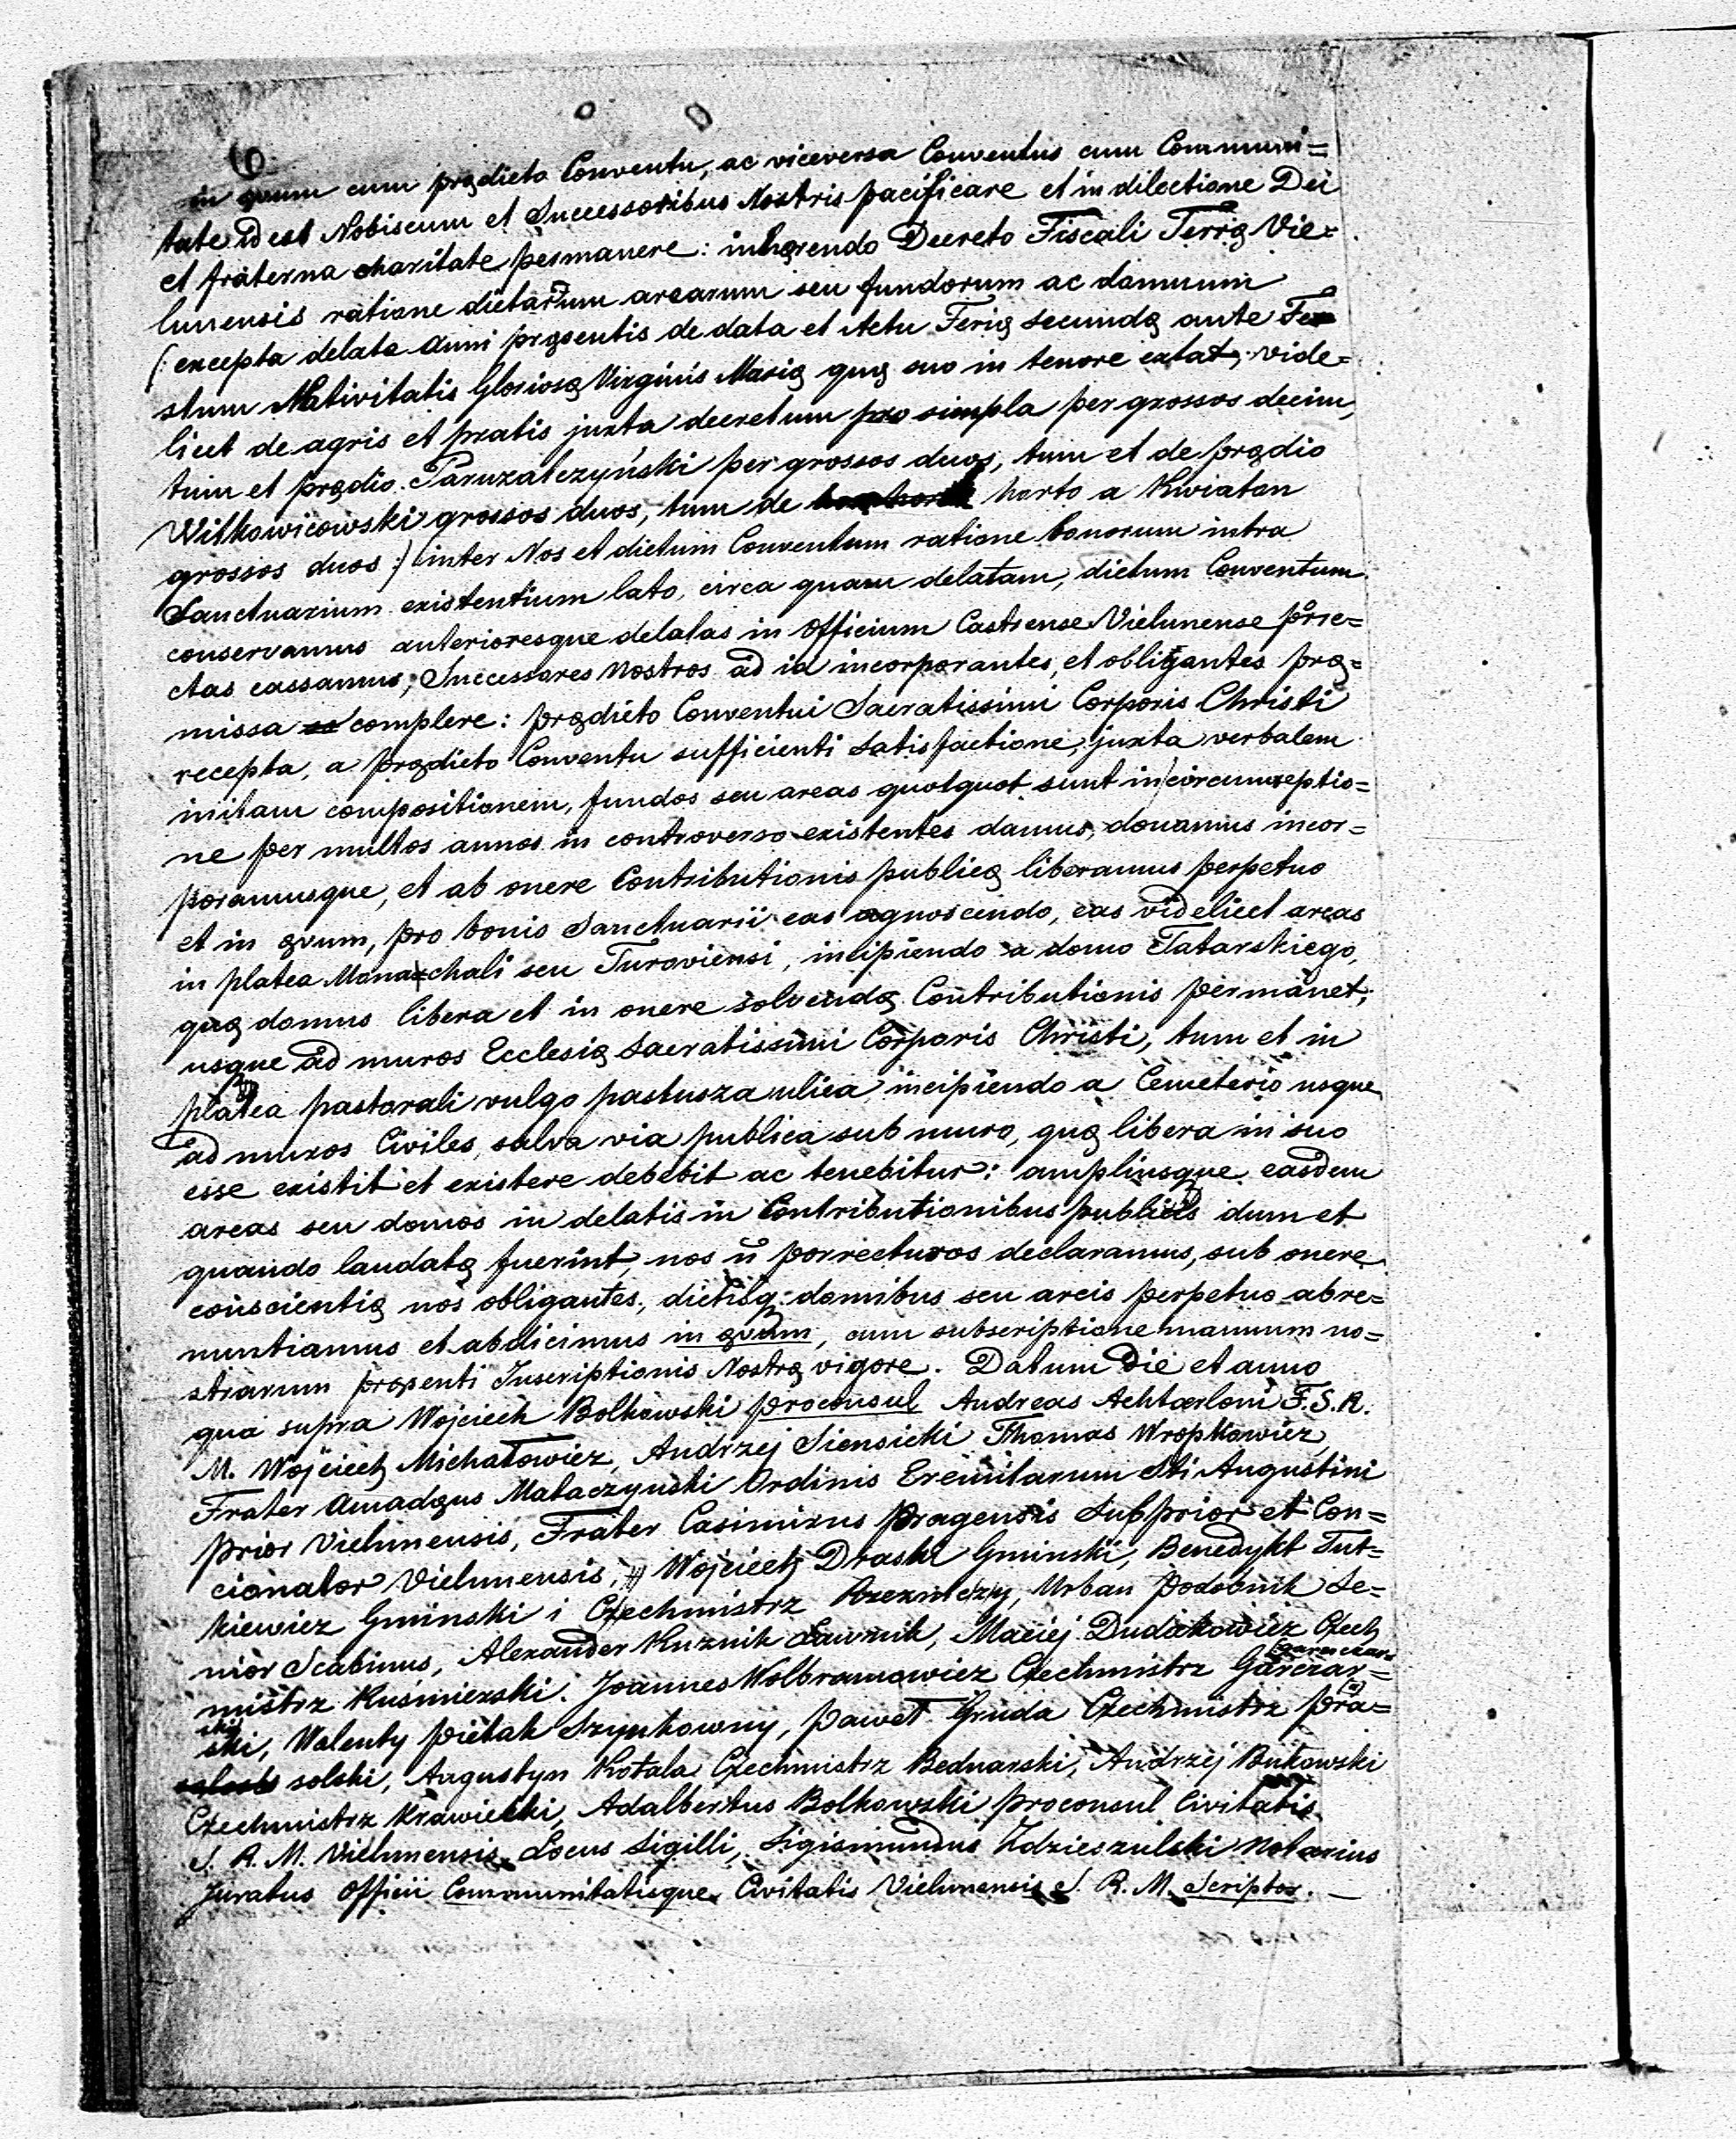 6
in ęvum cum prędicto Conventu, ac viceversa Conventus cum Communi=
tate id est Nobiscum et Successoribus Nostris pacificare et in dilectione Dei
et fraterna charitate permanere: inhęrendo Decreto Fiscali Terrę Vie=
lunensis ratione dictarum arearum seu fundorum ac domuum
(: excepta delata anni pręsentis de data et Actu Ferię secundę ante Fe
stum Nativitatis Gloriosę Virginis Marię quę suo in tenore extat, vide=
licet de agris et pratis juxta decretum pro simpla per grossos decim,
tum et prędio Paruzalczyński per grossos duos, tum et de prędio
Witkowicowski grossos duos, tum de horto a Kwiaton
grossos duos :) inter Nos et dictum Conventum ratione bonorum intra
Sanctuarium existentium lato, circa quam delatam, dictum Conventum
conservamus anterioresque delatas in Officium Castrense Vielunense porre=
ctas cassamus, Successores nostros ad id incorporantes, et obligantes prę=
missa complere: prędicto Conventui Sacratissimi Corporis Christi
recepta, a prędicto Conventu sufficienti satisfactione, juxta verbalem
initam compositionem, fundos seu areas quotquot sunt in circumseptio=
ne per multos annos in controverso existentes damus, donamus incor=
poramusque, et ab onere Contributionis publicę liberamus perpetuo
et in ęvum, pro bonis Sanctuarii eas agnoscendo, eas videlicet areas
in platea Monarchali seu Turoviensi, incipiendo a domo Tatarskiego,
quę domus libera et in onere solvendę Contributionis permanet,
usque ad muros Ecclesię Sacratissimi Corporis Christi, tum et in
platea pastorali vulgo pastusza ulica incipiendo a Cemeterio usque
ad muros Civiles, salva via publica sub muro, quę libera in suo
esse existit et existere debebit ac tenebitur: ampliusque easdem
areas seu domos in delatis in Contributionibus publicis dum et
quando laudatę fuerint, nos ñ porrecturos declaramus, sub onere
conscientię nos obligantes, dictisq. domibus seu areis perpetuo abre=
nuntiamus et abdicimus in ęvum, cum subscriptione manuum no=
strarum pręsenti Inscriptionis Nostrę vigore. Datum Die et anno
quo supra Wojciech Bolkowski proconsul Andreas Achtorloni F.S.R.
M. Wojciech Michałowicz, Andrzej Siensicki Thomas Wropkowicz,
Frater Amadęus Mataczynski Ordinis Eremitarum Sti Augustini
prior Vielunensis, Frater Casimirus Pragensis Subprior et Con=
cionator Vielunensis, Wojciech Draski Gminski, Benedykt Tut=
kiewicz Gminski i Czechmistrz Rzezniczy, Urban Podobnik Se=
nior Scabinus, Alexander Kuznik Ławnik, Maciej Dudakowicz Czech
mistrz Kuśmierski. Joannes Wolbramowicz Czechmistrz Garczar=
ski, Walenty Piełak Szynkowny, Paweł Gruda Czechmistrz Pra=
solski, Augustyn Kotala Czechmistrz Bednarski, Andrzej Bukowski
Czechmistrz Krawiecki, Adalbertus Bolkowski proconsul Civitatis
S. R. M. Vielunensis Locus Sigilli, Sigismundus Zdzieszulski Notarius
Juratus Officii Communitatisque Civitatis Vielunensis S. R. M. Scriptor. —